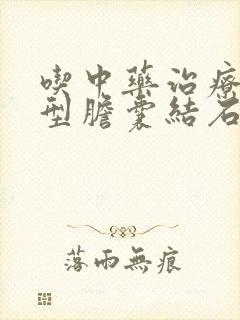 喫中藥治療
型膽囊結石
落雨無痕